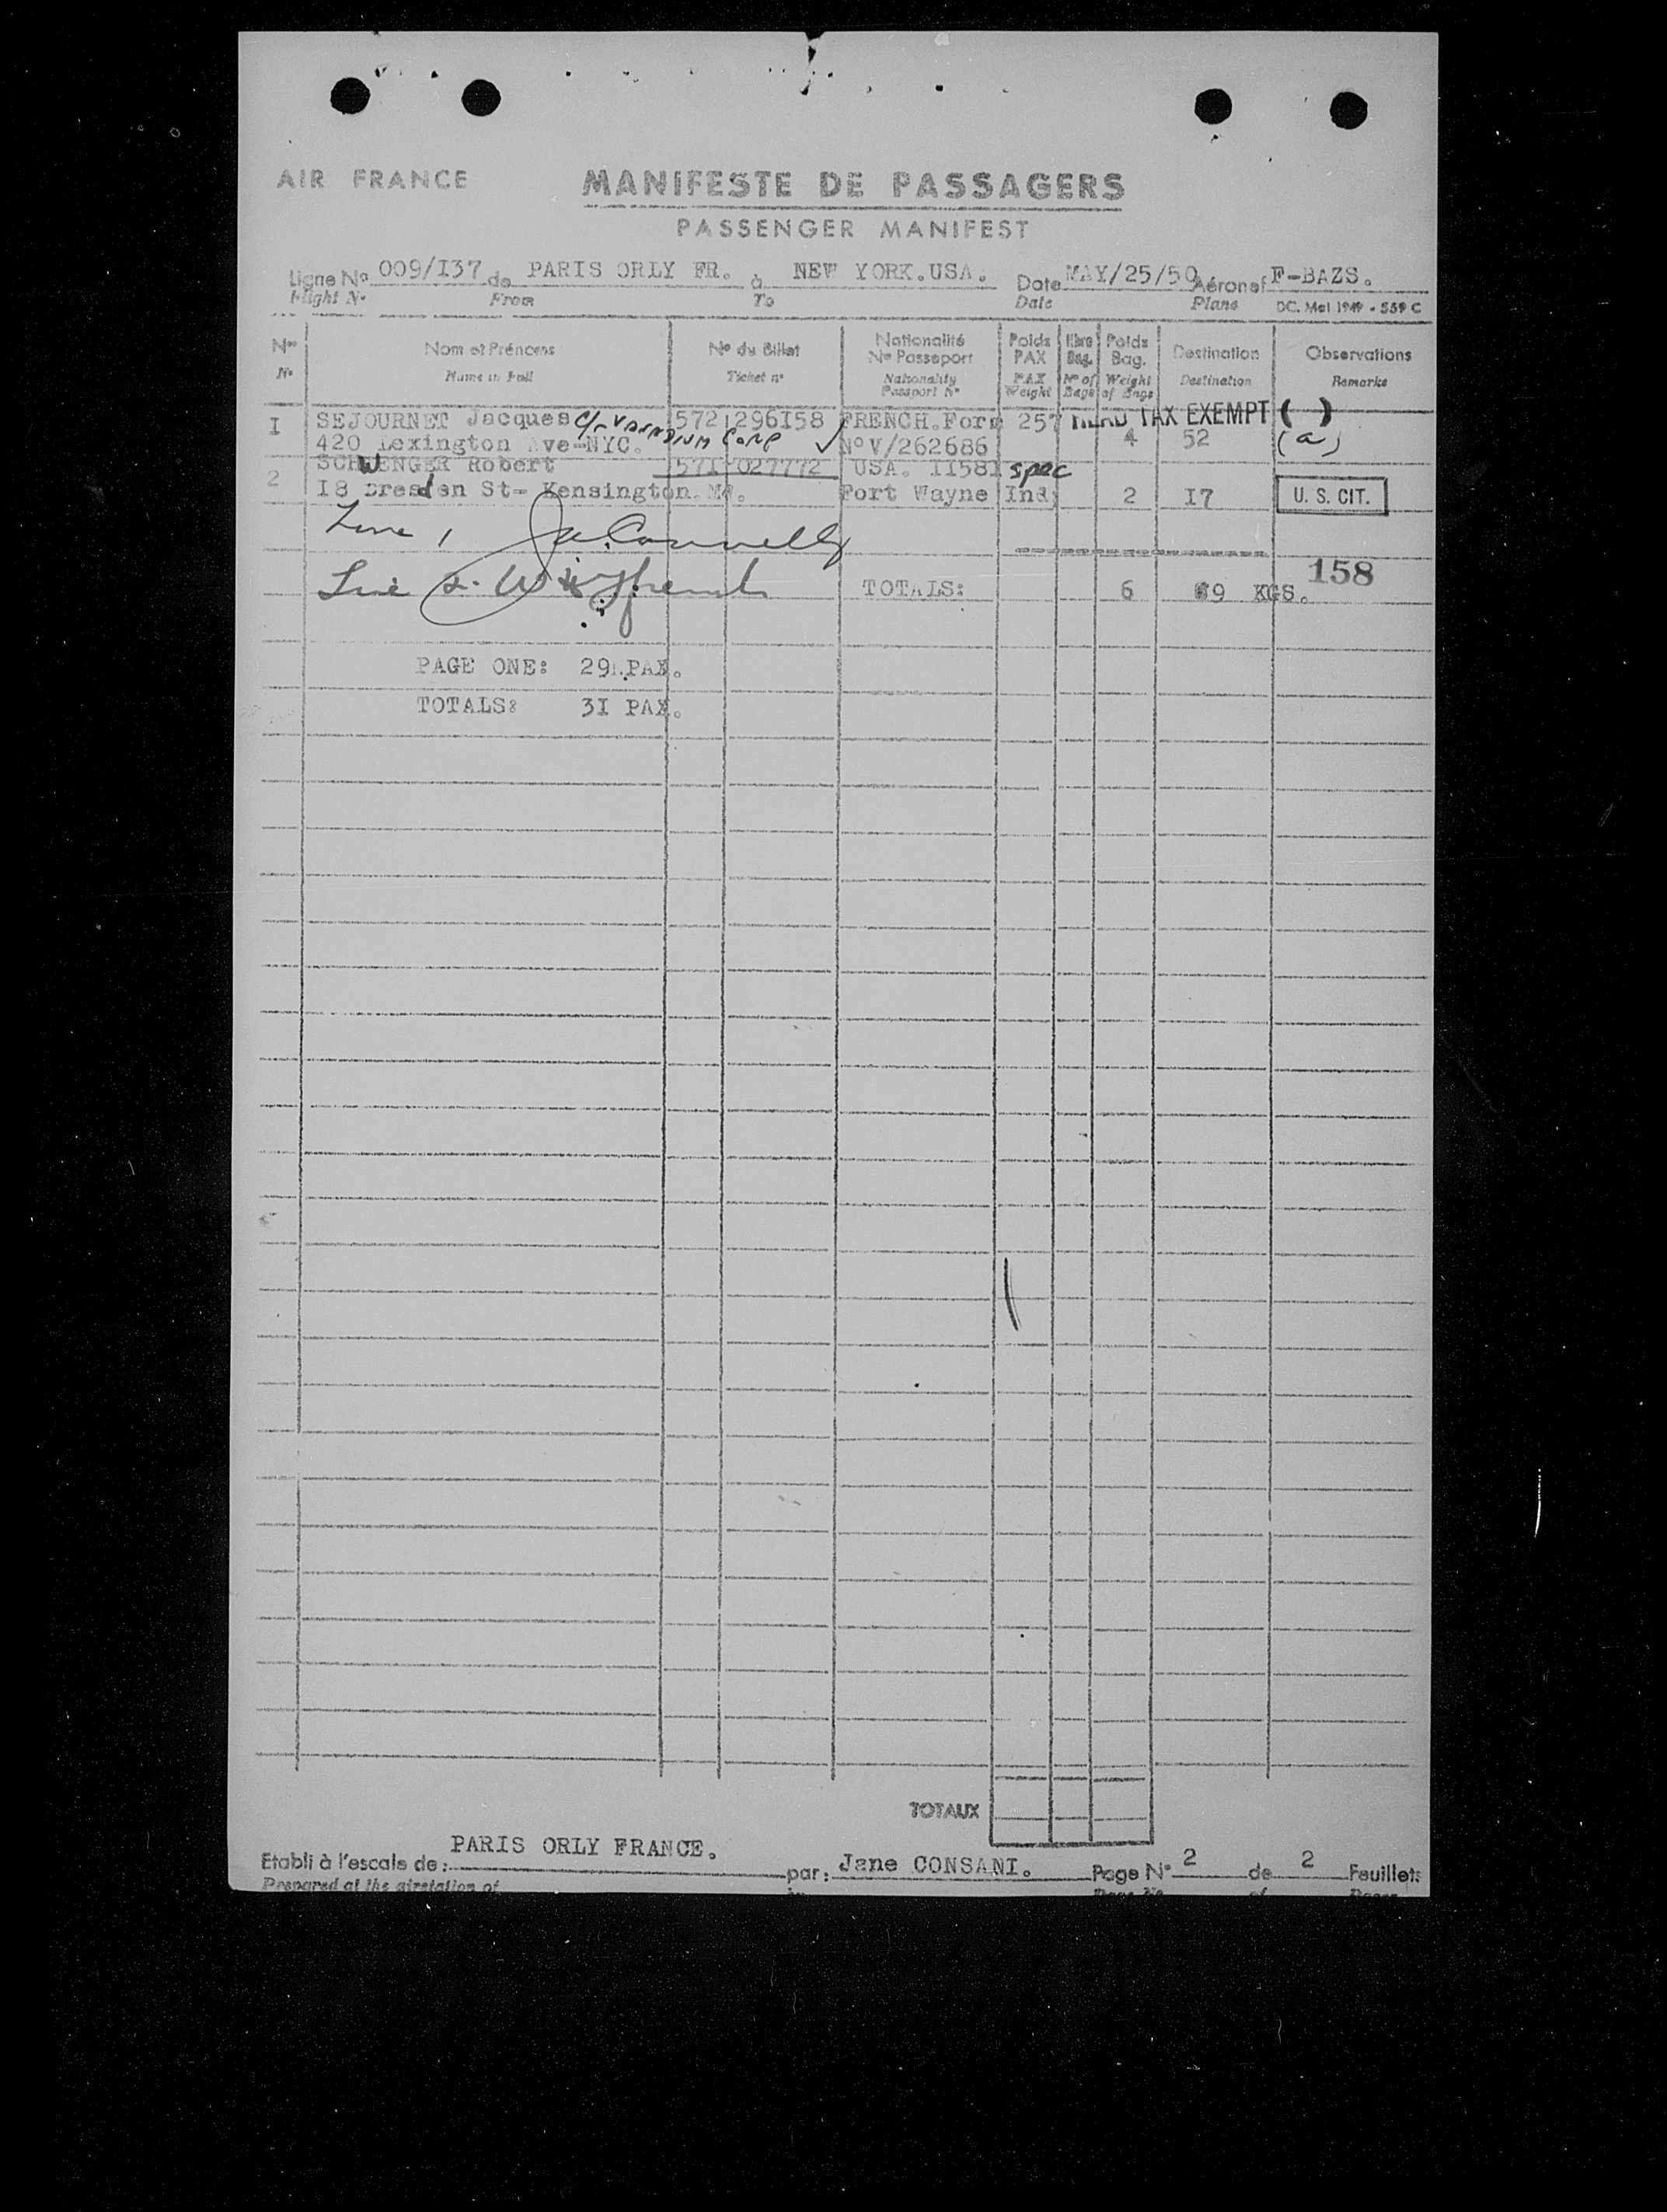 AIR FRANCE
MANIFESTE DE PASSAGERS
PASSENGER MANIFEST
Ligne No 009/I37 de PARIS ORLY FR. à NEW YORK.USA. Date MAY/25/50 Aéronef F-BAZS.
Flight No From To Date Plane DC. Mai 1949 - 559 C
Nos Nom et Prénoms No du Billet Nationalité No Passeport Poids PAX Nbre Bag. Poids Bag. Destination Observations
No Name in Full Ticket no Nationality Passport No PAX Weight No of Bags Weight of Bags Destination Remarks
I SEJOURNET Jacques 572 296I58 FRENCH.Form 257 HEAD TAX EXEMPT ( )
420 Lexington Ave-NYC. CORP NoV/262686 4 52 (a)
SCHWENGER Robert 57I 027772 USA. II581 spec
2 I8 Dresden St- Kensington.Md. Fort Wayne Ind; 2 I7 U. S. CIT.
Line 1 Connelly
158
Line 2. TOTALS: 6 69 KGS.
PAGE ONE: 29 PAX.
TOTALS: 3I PAX.
TOTAUX
Etabli à l'escale de: PARIS ORLY FRANCE. par: Jane CONSANI. Page No 2 de 2 Feuillets
Prepared at the airstation of by Page No of Pages